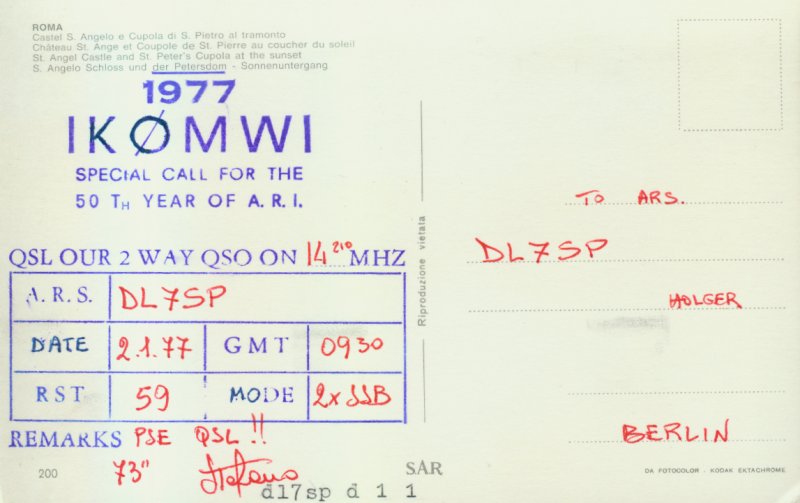 ROMA
Castel S. Angelo e Cupola di S. Pietro al tramonto
Château St. Ange et Coupole de St. Pierre au coucher du soleil
St. Angel Castle and St. Peter's Cupola at the sunset
S. Angelo Schloss und der Petersdom - Sonnenuntergang
1977
IKØMWI
SPECIAL CALL FOR THE
50 TH YEAR OF A.R.I.
QSL OUR 2 WAY QSO ON 14 210 MHZ
A.R.S. DL7SP
DATE 2.1.77 GMT 0930
RST 59 MODE 2x SSB
REMARKS PSE QSL !!
73" Stefano
200
SAR
dl7sp d 1 1
Riproduzione vietata
TO ARS.
DL7SP
HOLGER
BERLIN
DA FOTOCOLOR - KODAK EKTACHROME